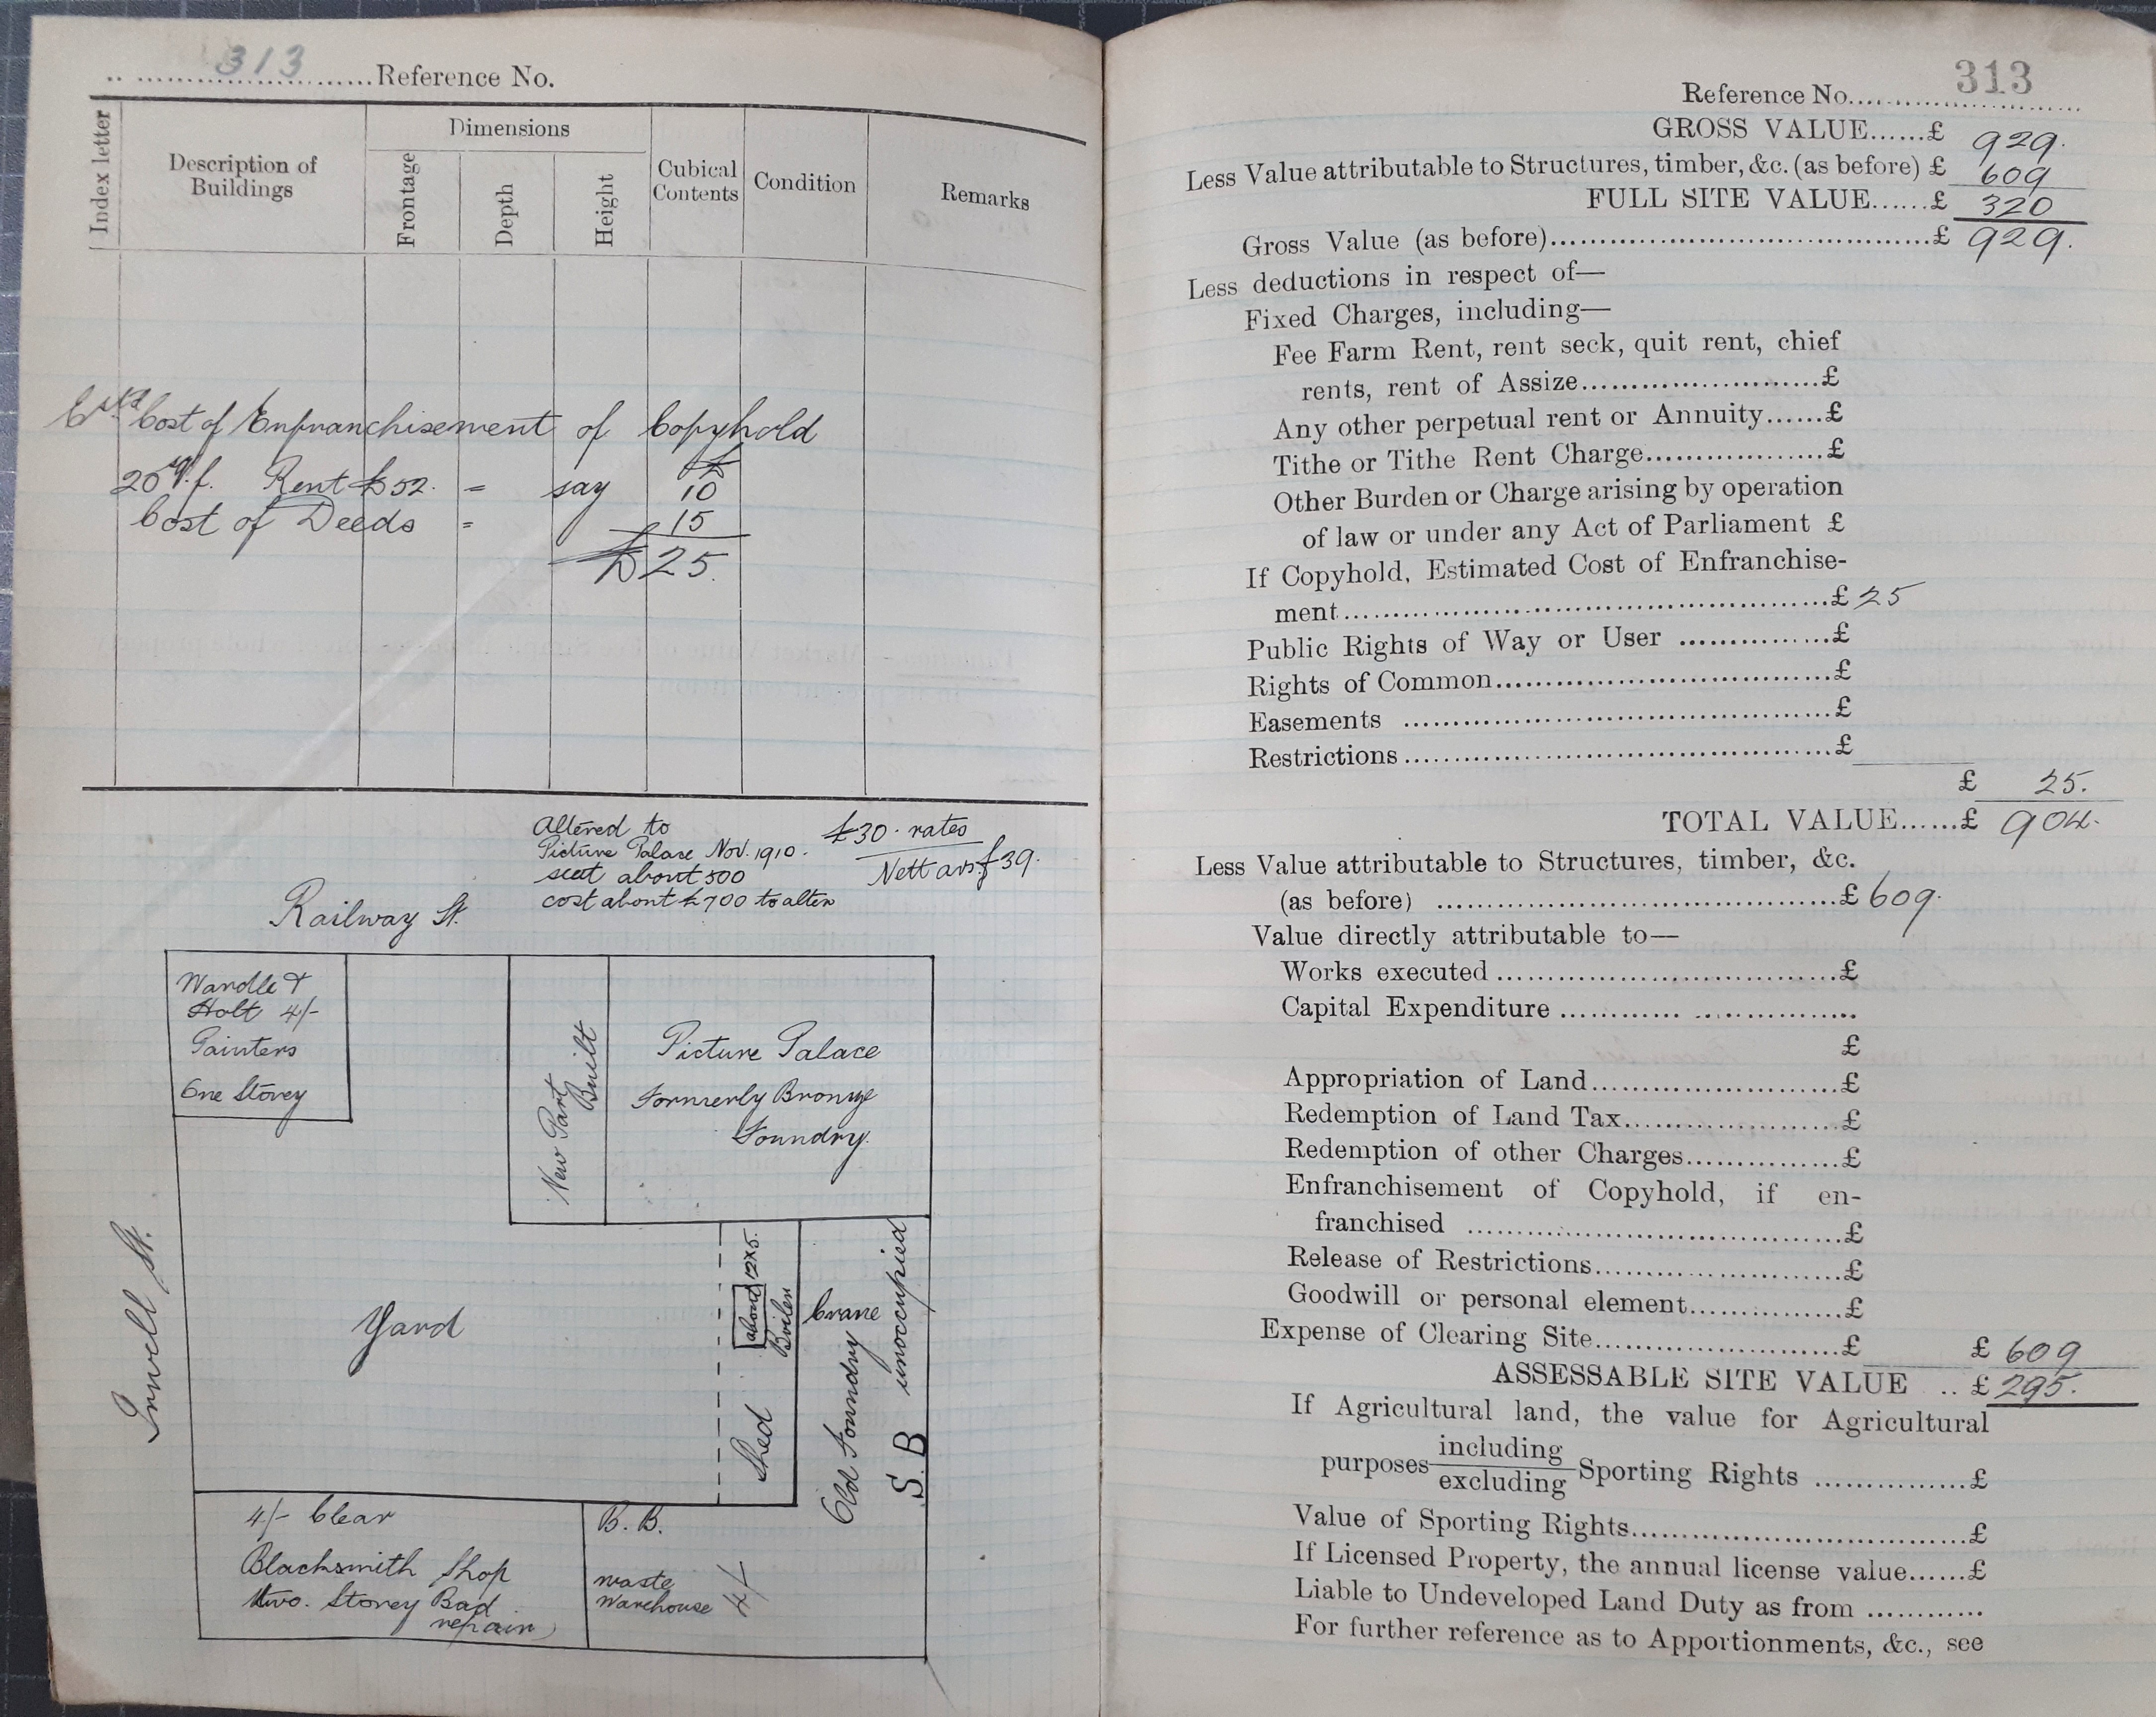 313 Reference No.
Index letter
Description of
Buildings
Dimensions
Frontage
Depth
Height
Cubical
Contents
Condition
Remarks
Cost of Enfranchisement of Copyhold
£
Rent £52. = say 10
Cost of Deeds = 15
£25.
Altered to
Picture Palace Nov. 1910.
seat about 500
cost about £700 to alter
£30. rates
Nett £39.
Railway St.
Wardle &
Holt 4/-
Painters
One Storey
New Part
Built
Picture Palace
Formerly Bronze
Foundry.
Irwell St.
Yard
Shed
about 12x5.
Boiler
Crane
Old Foundry
S. B unoccupied
4/- Clear
Blacksmith Shop
two. Storey Bad
repair
B. B.
waste
Warehouse 4/-
Reference No. 313
GROSS VALUE......£ 929.
Less Value attributable to Structures, timber, &c. (as before) £ 609
FULL SITE VALUE......£ 320
Gross Value (as before)......£ 929.
Less deductions in respect of—
Fixed Charges, including—
Fee Farm Rent, rent seck, quit rent, chief
rents, rent of Assize......£
Any other perpetual rent or Annuity......£
Tithe or Tithe Rent Charge......£
Other Burden or Charge arising by operation
of law or under any Act of Parliament £
If Copyhold, Estimated Cost of Enfranchise-
ment......£ 25
Public Rights of Way or User ......£
Rights of Common......£
Easements ......£
Restrictions......£
£ 25.
TOTAL VALUE......£ 904.
Less Value attributable to Structures, timber, &c.
(as before) ......£ 609.
Value directly attributable to—
Works executed ......£
Capital Expenditure ......
£
Appropriation of Land......£
Redemption of Land Tax......£
Redemption of other Charges......£
Enfranchisement of Copyhold, if en-
franchised ......£
Release of Restrictions......£
Goodwill or personal element......£
Expense of Clearing Site......£ £ 609
ASSESSABLE SITE VALUE .. £ 295.
If Agricultural land, the value for Agricultural
including
purposes Sporting Rights ......£
excluding
Value of Sporting Rights......£
If Licensed Property, the annual license value......£
Liable to Undeveloped Land Duty as from ............
For further reference as to Apportionments, &c., see